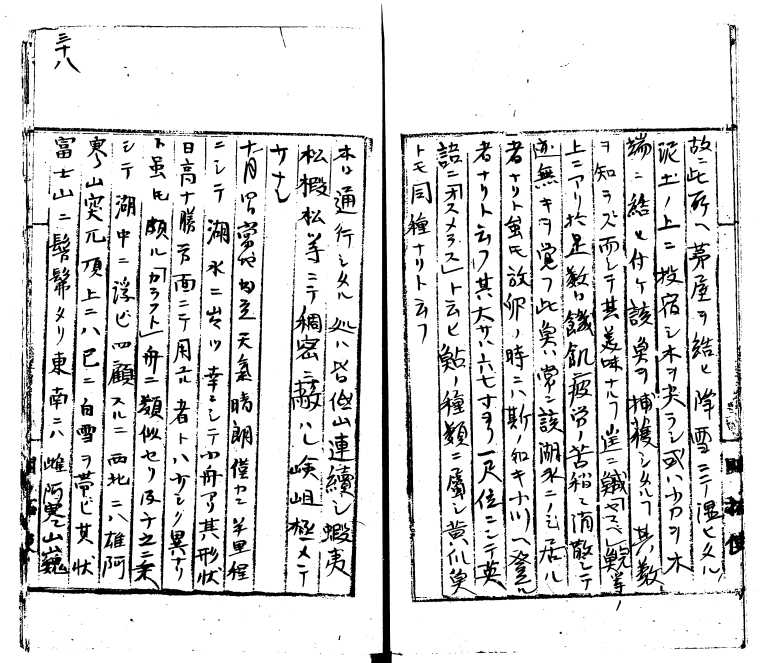 故ニ此所ヘ茅屋ヲ結ヒ降雪ニテ湿ヒタル
泥土ノ上ニ投宿シ木ヲ尖ラシ或ハ小刀ヲ木
端ニ結ヒ付ケ該魚ヲ捕獲シタルヿ其数
ヲ知ラズ而シテ其美味ナルヿ
上ニアリ於是数日饑飢疲労ノ苦稍ク消散シテ
亦無キヲ覚フ此魚ハ常ニ該湖水ニノミ居ル
者ナリト虽モ放卵ノ時ニハ斯ノ如キ小川ヘ登ル
者ナリト云フ其大サハ六七寸ヨリ一尺位ニシテ英
語ニ「オスメラス」ト云ヒ鮎ノ種類ニ属シ黄爪魚
トモ同種ナリト云フ
三十八
本日通行シタル処ハ皆低山連續シ蝦夷
松椴松等ニテ稠密ニ蔽ハレ峻岨極メテ
少ナシ
天氣晴朗僅カニ半里程
ニシテ湖水ニ出ツ幸ニシテ小舟アリ其形状
日高十勝方面ニテ用ユル者トハ少シク異ナリ
ト虽モ頗ル舟ニ類似セリ及チ之ニ乗
シテ湖中ニ浮ビ四顧スルニ西北ニハ雄阿
寒山突兀頂上ニハ已ニ白雪ヲ帯ビ其状
富士山ニ髣髴タリ東南ニハ雌阿寒山巍